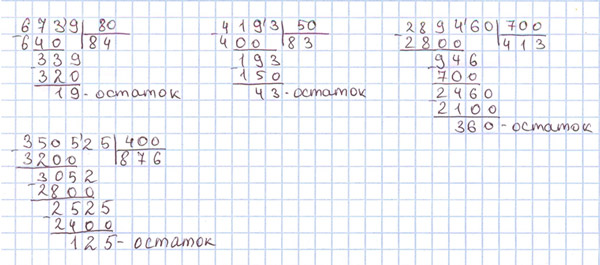 -6739 80
640 84
-339
320
19 - остаток
-4193 50
400 83
-193
150
43 - остаток
-289460 700
2800 413
-946
700
-2460
2100
360 - остаток
-350525 400
3200 876
-3052
2800
-2525
2400
125 - остаток